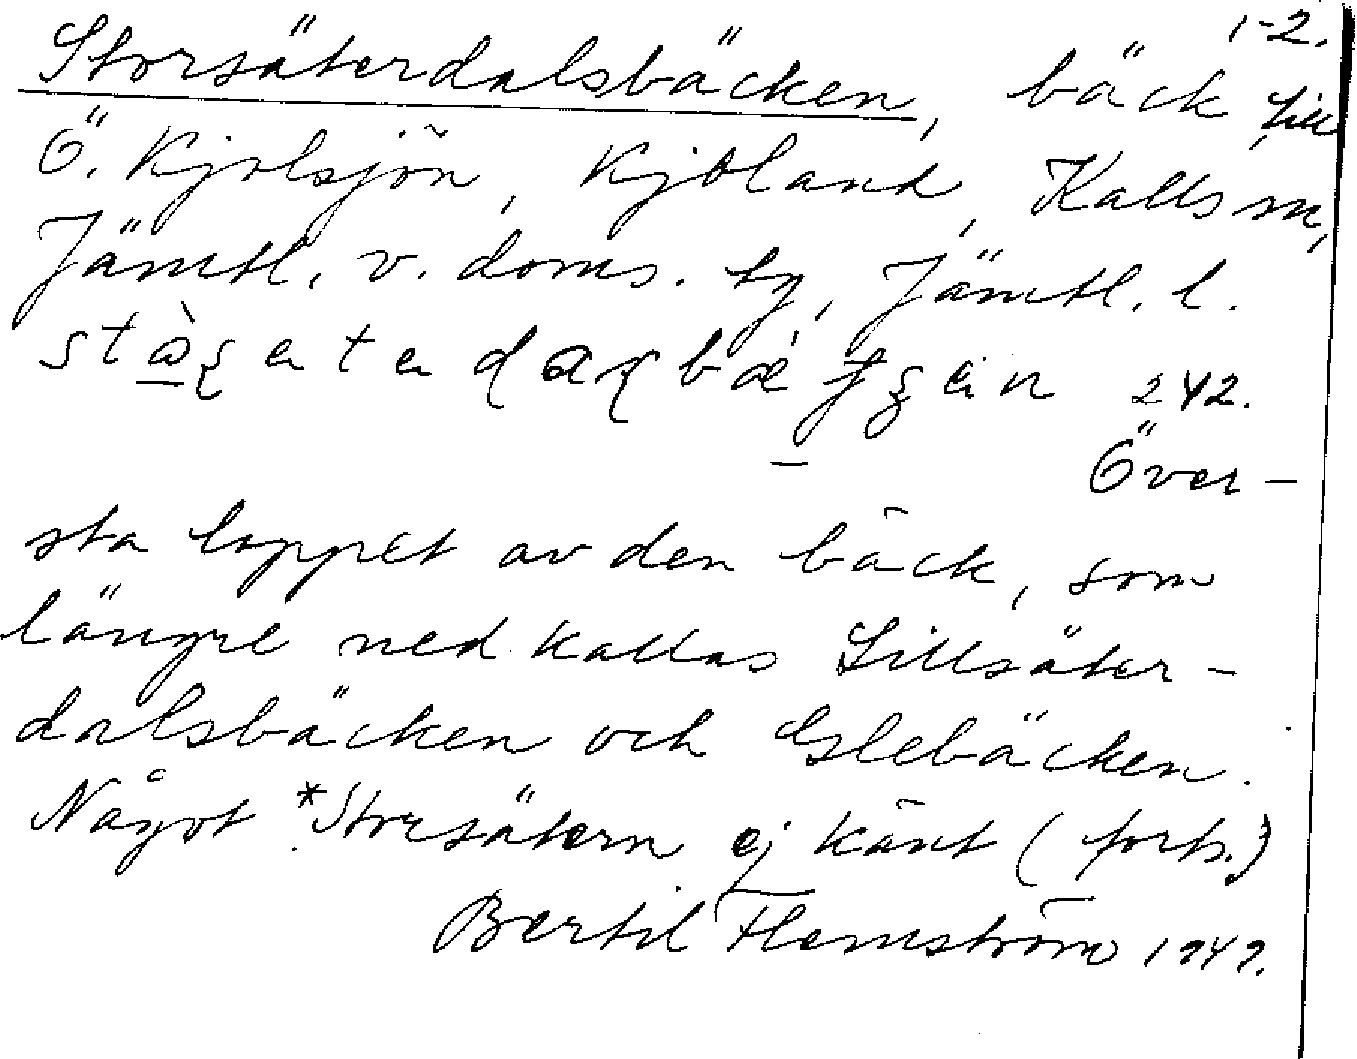 1-2.
Storsäterdalsbäcken, bäck till
Ö. Kjolsjön, Kjoland, Kalls sn,
Jämtl. v. doms. tg, Jämtl. l.
242.
Över-
sta loppet av den bäck, som
längre ned kallas Lillsäter-
dalsbäcken och Glebäcken.
Något *Storsätern ej känt (forts.)
Bertil Flemström 1949.